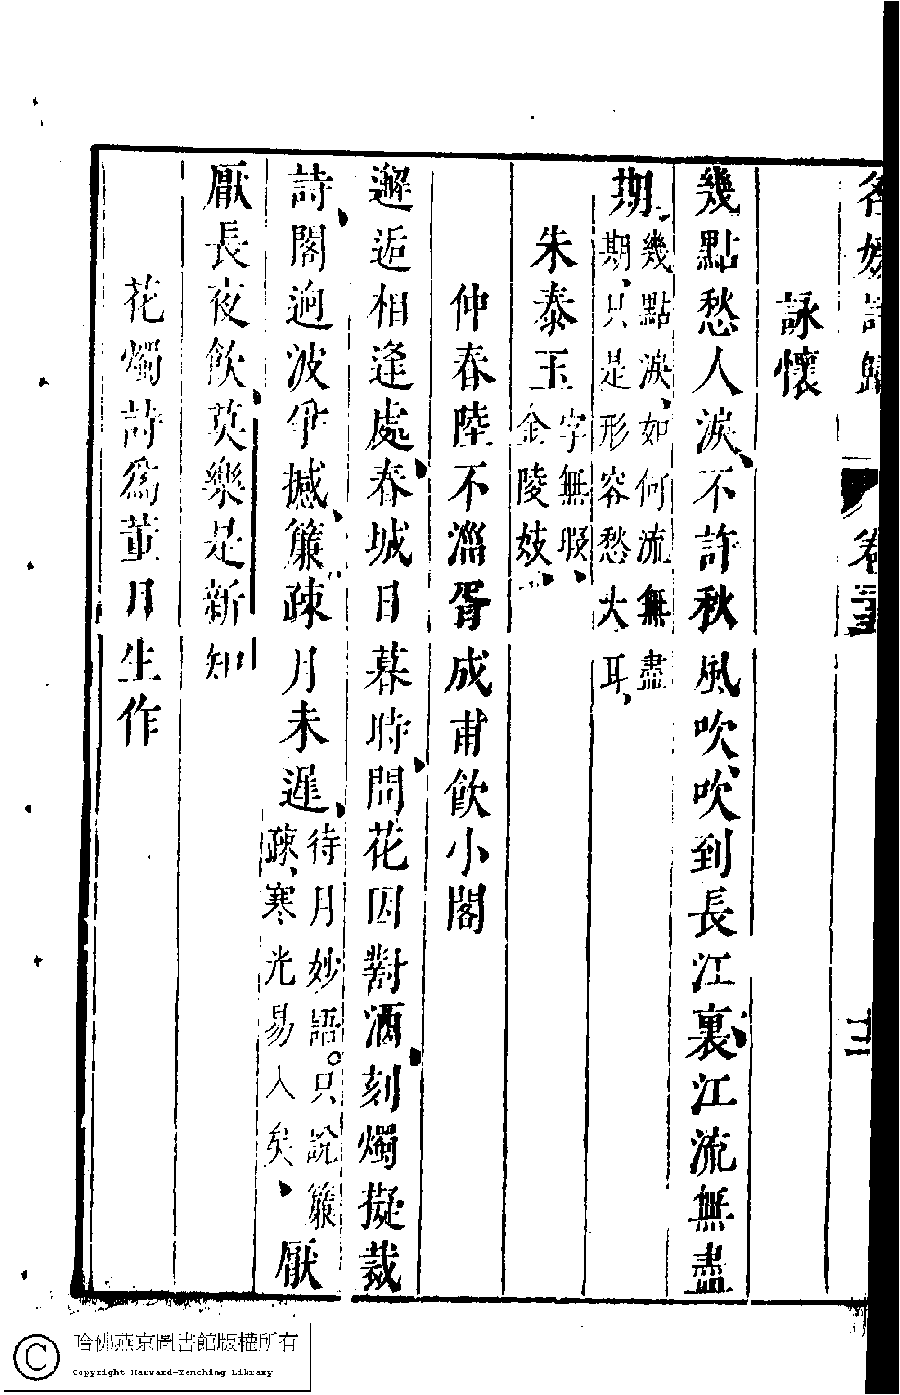 名媛詩歸 卷三十五 十二
詠懷
幾點愁人淚、不許秋風吹、吹到長江裏、江流無盡
期、幾點淚、如何流無盡期、只是形容愁大耳、
朱泰玉 字無瑕、金陵妓、
仲春陸不淄胥成甫飲小閣
邂逅相逢處、春城日暮時、問花因對酒、刻燭擬裁
詩、閣逈波伊撼、簾疎月未遲、待月妙語。只說簾疎、寒光易入矣、厭
厭長夜飲、莫樂是新知
花燭詩爲董月生作
哈佛燕京圖書館版權所有
Copyright Harvard-Yenching Library